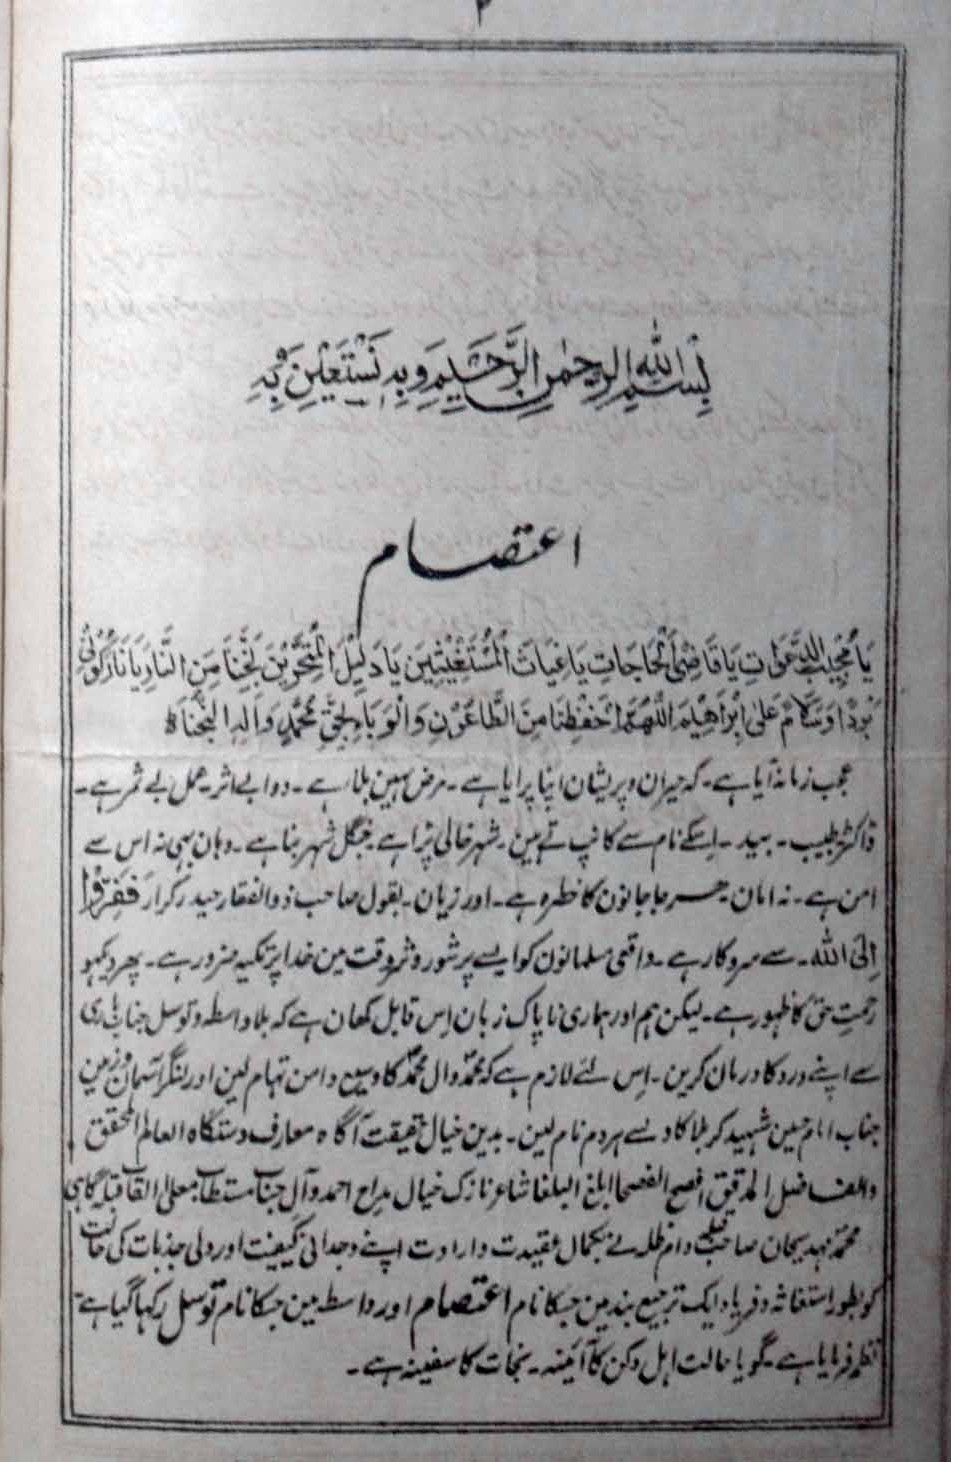 ۲
بسم الله الرحمن الرحیم وبه نستعین به
اعتصام
يَا مُجِيبَ الدَّعَوَاتِ يَا قَاضِيَ الْحَاجَاتِ يَا غِيَاثَ الْمُسْتَغِيثِينَ يَا دَلِيلَ الْمُتَحَيِّرِينَ نَجِّنَا مِنَ النَّارِ يَا نَارُ كُونِي
بَرْدًا وَسَلَامٌ عَلٰى إِبْرَاهِيْمَ اَللّٰهُمَّ احْفَظْنَا مِنَ الطَّاعُوْنِ وَالْوَبَاءِ بِحَقِّ مُحَمَّدٍ وَاٰلِهِ النُّجَبَاءِ
عجب زمانہ آیا ہے۔ کہ حیران و پریشان اپنا پرایا ہے۔ مرض نہین بلا ہے۔ دوا بے اثر۔ عمل بے ثمر ہے۔
ڈاکٹر طبیب۔ بید۔ اسکے نام سے کانپ تے ہین۔ شہر خالی پڑا ہے جنگل شہر بنا ہے۔ وہان بہی نہ اس سے
امن ہے۔ نہ امان۔ ہر جا جانون کا خطرہ ہے۔ اور زیان۔ بقول صاحب ذوالفقار حیدر کرار فَفِرُّوْا
اِلَی اللّٰہ۔ سے سروکار ہے۔ واقعی مسلمانون کو ایسے پر شور و شر وقت مین خدا پر تکیہ ضرور ہے۔ پھر دیکہو
رحمتِ حق کا ظہور ہے۔ لیکن ہم اور ہماری ناپاک زبان اِس قابل کھان ہے کہ بلا واسطہ و توسل جناب باری
سے اپنے درد کا درمان کرین۔ اِس لئے لازم ہے کہ محمدؐ و ال محمدؐ کا وسیع دامن تہام لین اور لنگر آسمان و زمین
جناب امام حسین شہید کربلا کا دلسے ہردم نام لین۔ بدین خیال حقیقت آگاہ معارف دستگاہ العالم المحقق
والفاضل المدقیق افصح الفصحا ابلغ البلغا شاعر نازک خیال مداح احمد و آل جناب مستطاب معلی القاب قبلہ گاہی
محمد مہدیجان صاحب قبلہ دام ظلہ نے بکمال عقیدت و ارادت اپنے وجدانی کیفیت اور دلی جذبات کی حالت
کو بطور استغاثہ و فریاد ایک ترجیع بند مین جسکا نام اعتصام اور واسطہ مین جسکا نام توسل رکہا گیا ہے
نظم فرمایا ہے۔ گویا حالت اہل دکن کا آئینہ۔ نجات کا سفینہ ہے۔